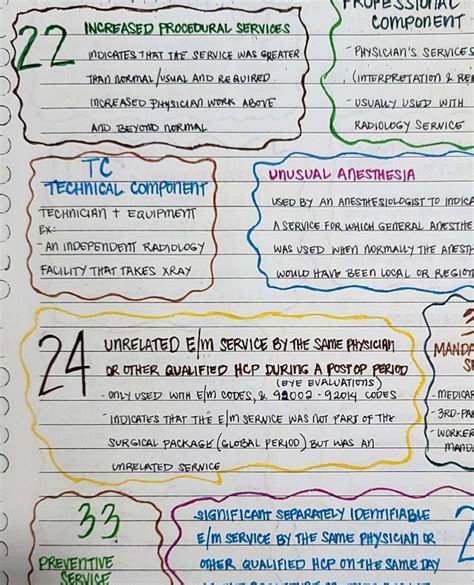 22 INCREASED PROCEDURAL SERVICES
INDICATES THAT THE SERVICE WAS GREATER
THAN NORMAL/USUAL AND REQUIRED
INCREASED PHYSICIAN WORK ABOVE
AND BEYOND NORMAL
PROFESSIONAL
COMPONENT
- PHYSICIAN'S SERVICES
(INTERPRETATION & RE
- USUALLY USED WITH
RADIOLOGY SERVICE
TC
TECHNICAL COMPONENT
TECHNICIAN + EQUIPMENT
EX:
- AN INDEPENDENT RADIOLOGY
FACILITY THAT TAKES XRAY
UNUSUAL ANESTHESIA
USED BY AN ANESTHESIOLOGIST TO INDICA
A SERVICE FOR WHICH GENERAL ANESTHE
WAS USED WHEN NORMALLY THE ANESTH
WOULD HAVE BEEN LOCAL OR REGIO
24 UNRELATED E/M SERVICE BY THE SAME PHYSICIAN
OR OTHER QUALIFIED HCP DURING A POSTOP PERIOD
(EYE EVALUATIONS)
- ONLY USED WITH E/M CODES, & 92002 - 92014 CODES
- INDICATES THAT THE E/M SERVICE WAS NOT PART OF THE
SURGICAL PACKAGE (GLOBAL PERIOD) BUT WAS AN
UNRELATED SERVICE
MANDA
- MEDICAR
- 3RD-PA
- WORKER
MAND
33
PREVENTIVE
SERVICE
- SIGNIFICANT SEPARATELY IDENTIFIABLE
E/M SERVICE BY THE SAME PHYSICIAN OR
OTHER QUALIFIED HCP ON THE SAME DAY